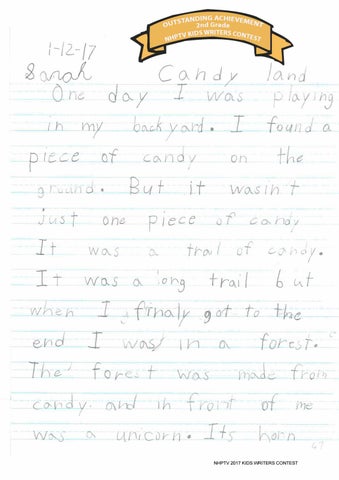 OUTSTANDING ACHIEVEMENT
2nd Grade
NHPTV KIDS WRITERS CONTEST
1-12-17
Sarah Candy land
One day I was playing
in my backyard. I found a
piece of candy on the
ground. But it wasin't
just one piece of candy
It was a trail of candy.
It was a long trail but
when I finaly got to the
end I was in a forest.
The forest was made from
candy. and in front of me
was a unicorn. Its horn
NHPTV 2017 KIDS WRITERS CONTEST